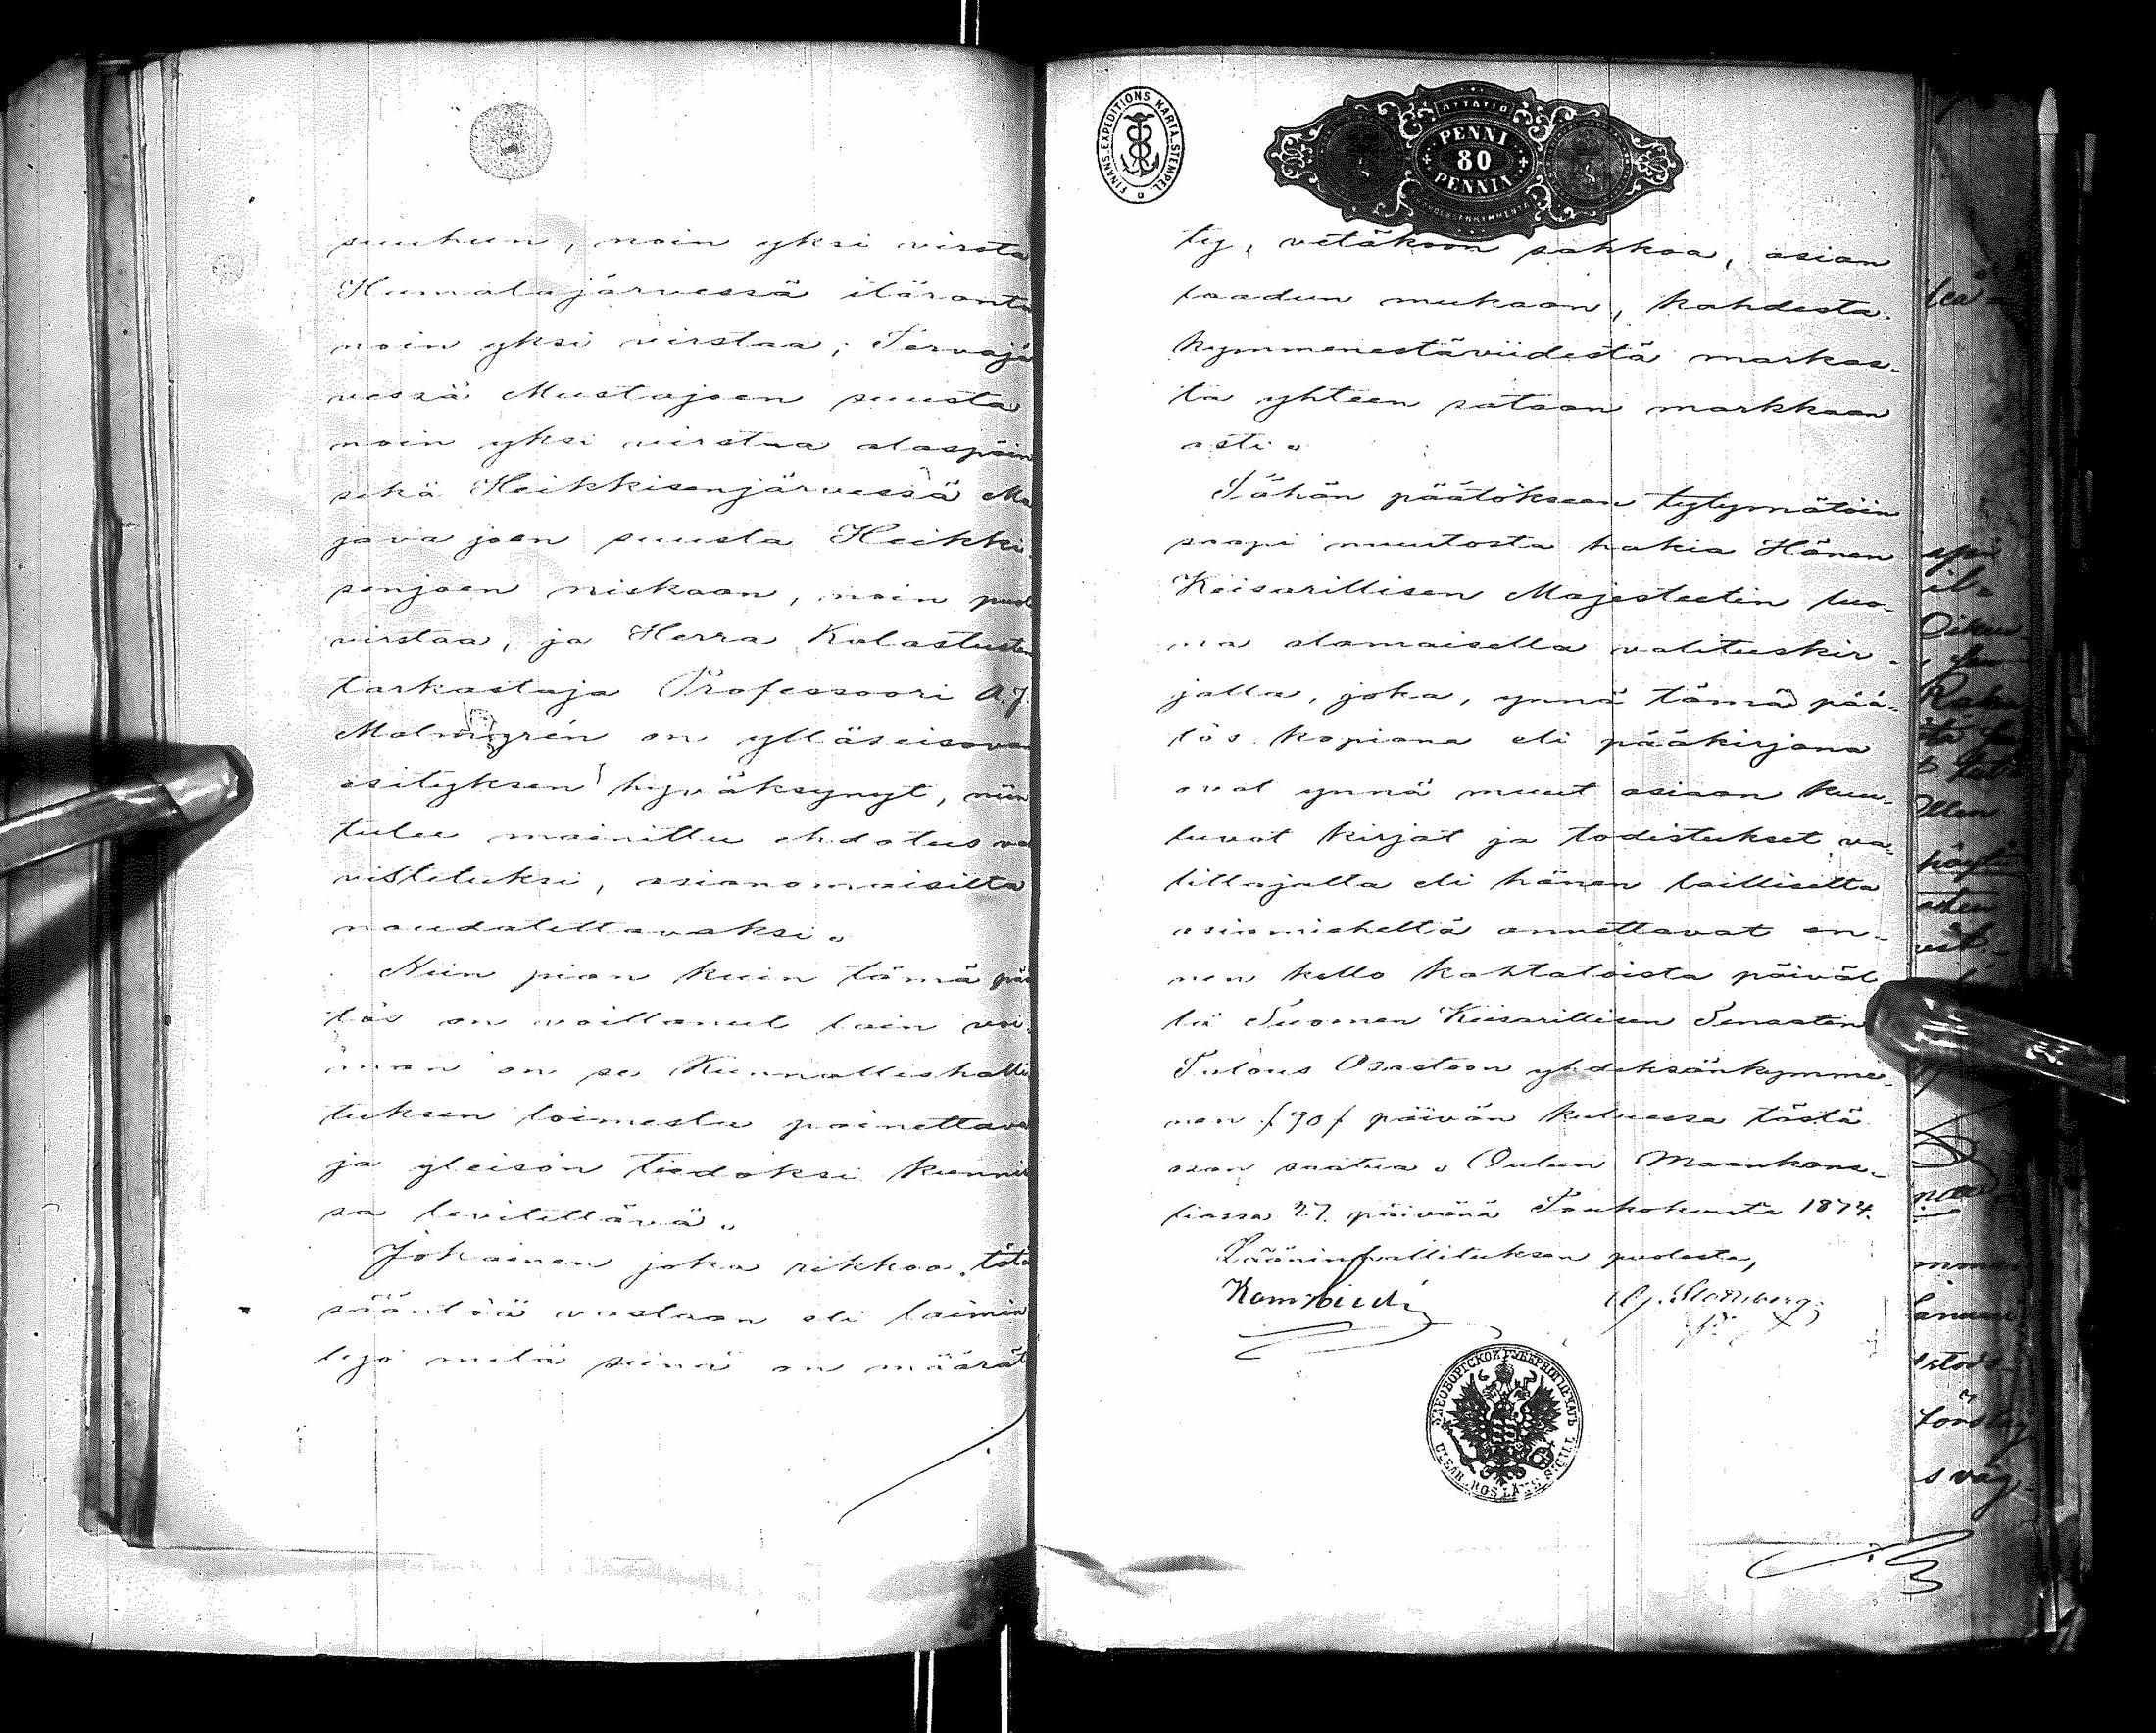 suuhun, noin yksi virsta
Humalajärvessä itäranta
noin yksi virstaa; Tervajä
vessä Mustajoen suusta
noin yksi virstaa alaspäin
sekä Heikkisenjärvessä Ma
java joen suusta Heikki
senjoen niskaan, noin puol
virstaa, ja Herra Kalastusten
tarkastaja Professoori A.J.
Malmgrén on ylläseisovan
esityksen hyväksynyt, niin
tulee mainittu ehdotus va
vistetuksi, asianomaisilta
noudatettavaksi.
Niin pian kuin tämä pää
tös on voittanut lain voi-
man on se Kunnallishalli
tuksen toimesta painettava
ja yleisön tiedoksi kunnis
sa levitettävä.
Jokainen joka rikkoo tätä
sääntöä vastaan eli laimin
lyö mitä siinä on määrät
FINANS-EXPEDITIONS KARTA STEMPEL
ÅTTATIO
PENNI
80
PENNIÄ
ty, vetäköön sakkoa, asian
laadun mukaan, kahdesta-
kymmenestäviidestä markas-
ta yhteen sataan markkaan
asti.
Tähän päätökseen tytymätöin
saapi muutosta hakia Hänen
Keisarillisen Majesteetin luo-
na alamaisella valituskir-
jalla, joka, ynnä tämä pää-
tös kopiana eli pääkirjana
ovat ynnä muut asiaan kuu-
luvat kirjat ja todistukset va-
littajalta eli hänen lailliselta
asiamieheltä annettavat en-
nen kello kahtatoista päiväl
lä Suomen Keisarillisen Senaatin
Talous Osastoon yhdeksänkymme-
nen /90/ päivän kuluessa tästä
osan saatua. Oulun Maankans-
liassa 27 päivänä Toukokuuta 1874.
Lääninhallituksen puolesta,